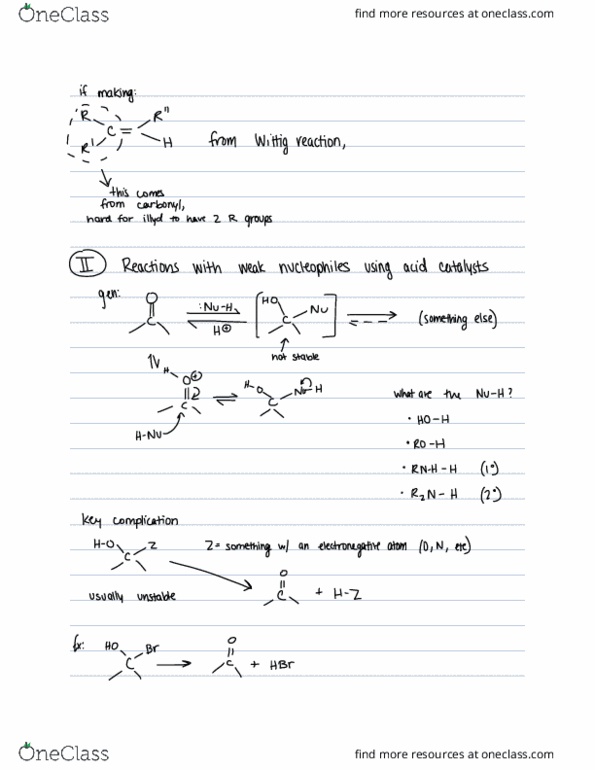 OneClass
find more resources at oneclass.com
if making:
R
R"
C
=
R'
H
from Wittig reaction,
this comes
from carbonyl,
hard for illyd to have 2 R groups
II Reactions with weak nucleophiles using acid catalysts
gen:
O
C
:Nu-H
H⊕
HO
Nu
C
(something else)
not stable
H
O⊕
C
H-Nu
H-O
C
Nu-H
What are the Nu-H?
• HO-H
• RO-H
• RNH-H (1°)
• R₂N-H (2°)
Key complication
H-O
Z
C
Z = something w/ an electronegative atom (O, N, etc)
usually unstable
O
C
+ H-Z
Ex:
HO
Br
C
O
C
+ HBr
OneClass
find more resources at oneclass.com